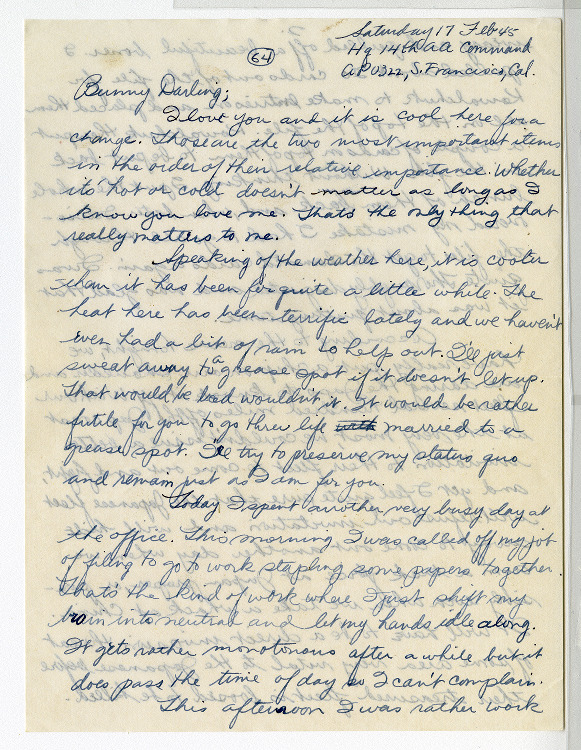 Saturday 17 Feb 45
Hq 14th AA Command
APO 322, S. Francisco, Cal.
64
Bunny Darling;
I love you and it is cool here for a
change. Those are the two most important items
in the order of their relative importance. Whether
its hot or cold doesn't matter as long as I
know you love me. Thats the only thing that
really matters to me.
Speaking of the weather here, it is cooler
than it has been for quite a little while. The
heat here has been terrific lately and we haven't
even had a bit of rain to help out. I'll just
sweat away to a grease spot if it doesn't let up.
That would be bad wouldn't it. It would be rather
futile for you to go thru life with married to a
grease spot. I'll try to preserve my status quo
and remain just as I am for you.
Today I spent another very busy day at
the office. This morning I was called off my job
of filing to go to work stapling some papers together.
Thats the kind of work where I just shift my
brain into neutral and let my hands idle along.
It gets rather monotonous after a while but it
does pass the time of day so I can't complain.
This afternoon I was rather work